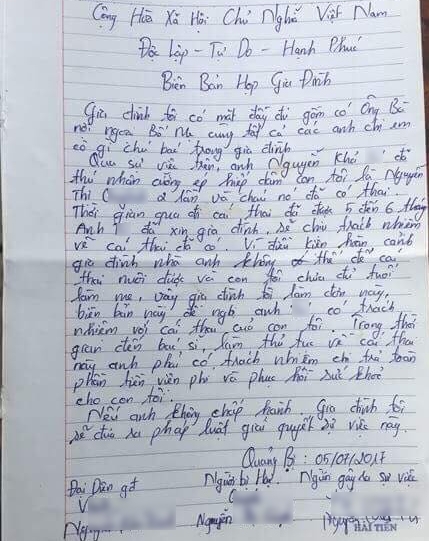 Cộng Hòa Xã Hội Chủ Nghĩa Việt Nam
Độc Lập - Tự Do - Hạnh Phúc
Biên Bản Họp Gia Đình
Gia đình tôi có mặt đầy đủ gồm có Ông Bà
nội ngoại Bố Mẹ cùng tất cả các anh chị em
cô gì chú bác trong gia đình
Qua sự việc trên, anh Nguyễn Khá đã
thú nhận cưỡng ép hiếp dâm con tôi là Nguyễn
Thị 2 lần và cháu nó đã có thai.
Thời gian qua đi cái thai đã được 5 đến 6 tháng
Anh đã xin gia đình, sẽ chịu trách nhiệm
về cái thai đã có. Vì điều kiện hoàn cảnh
gia đình nhà anh không thể để cái
thai nuôi được và con tôi chưa đủ tuổi
làm mẹ, vậy gia đình tôi làm đơn này,
biên bản này đề nghị anh có trách
nhiệm với cái thai của con tôi. Trong thời
gian đến bác sĩ làm thủ tục về cái thai
này anh phải có trách nhiệm chi trả toàn
phần tiền viện phí và phục hồi sức khoẻ
cho con tôi.
Nếu anh không chấp hành gia đình tôi
sẽ đưa ra pháp luật giải quyết sự việc này.
Quảng Bị : 05/07/2017
Đại Diện gđ Người bị Hại. Người gây ra sự việc
V
Nguyễn Nguyễn
HẢI TIẾN